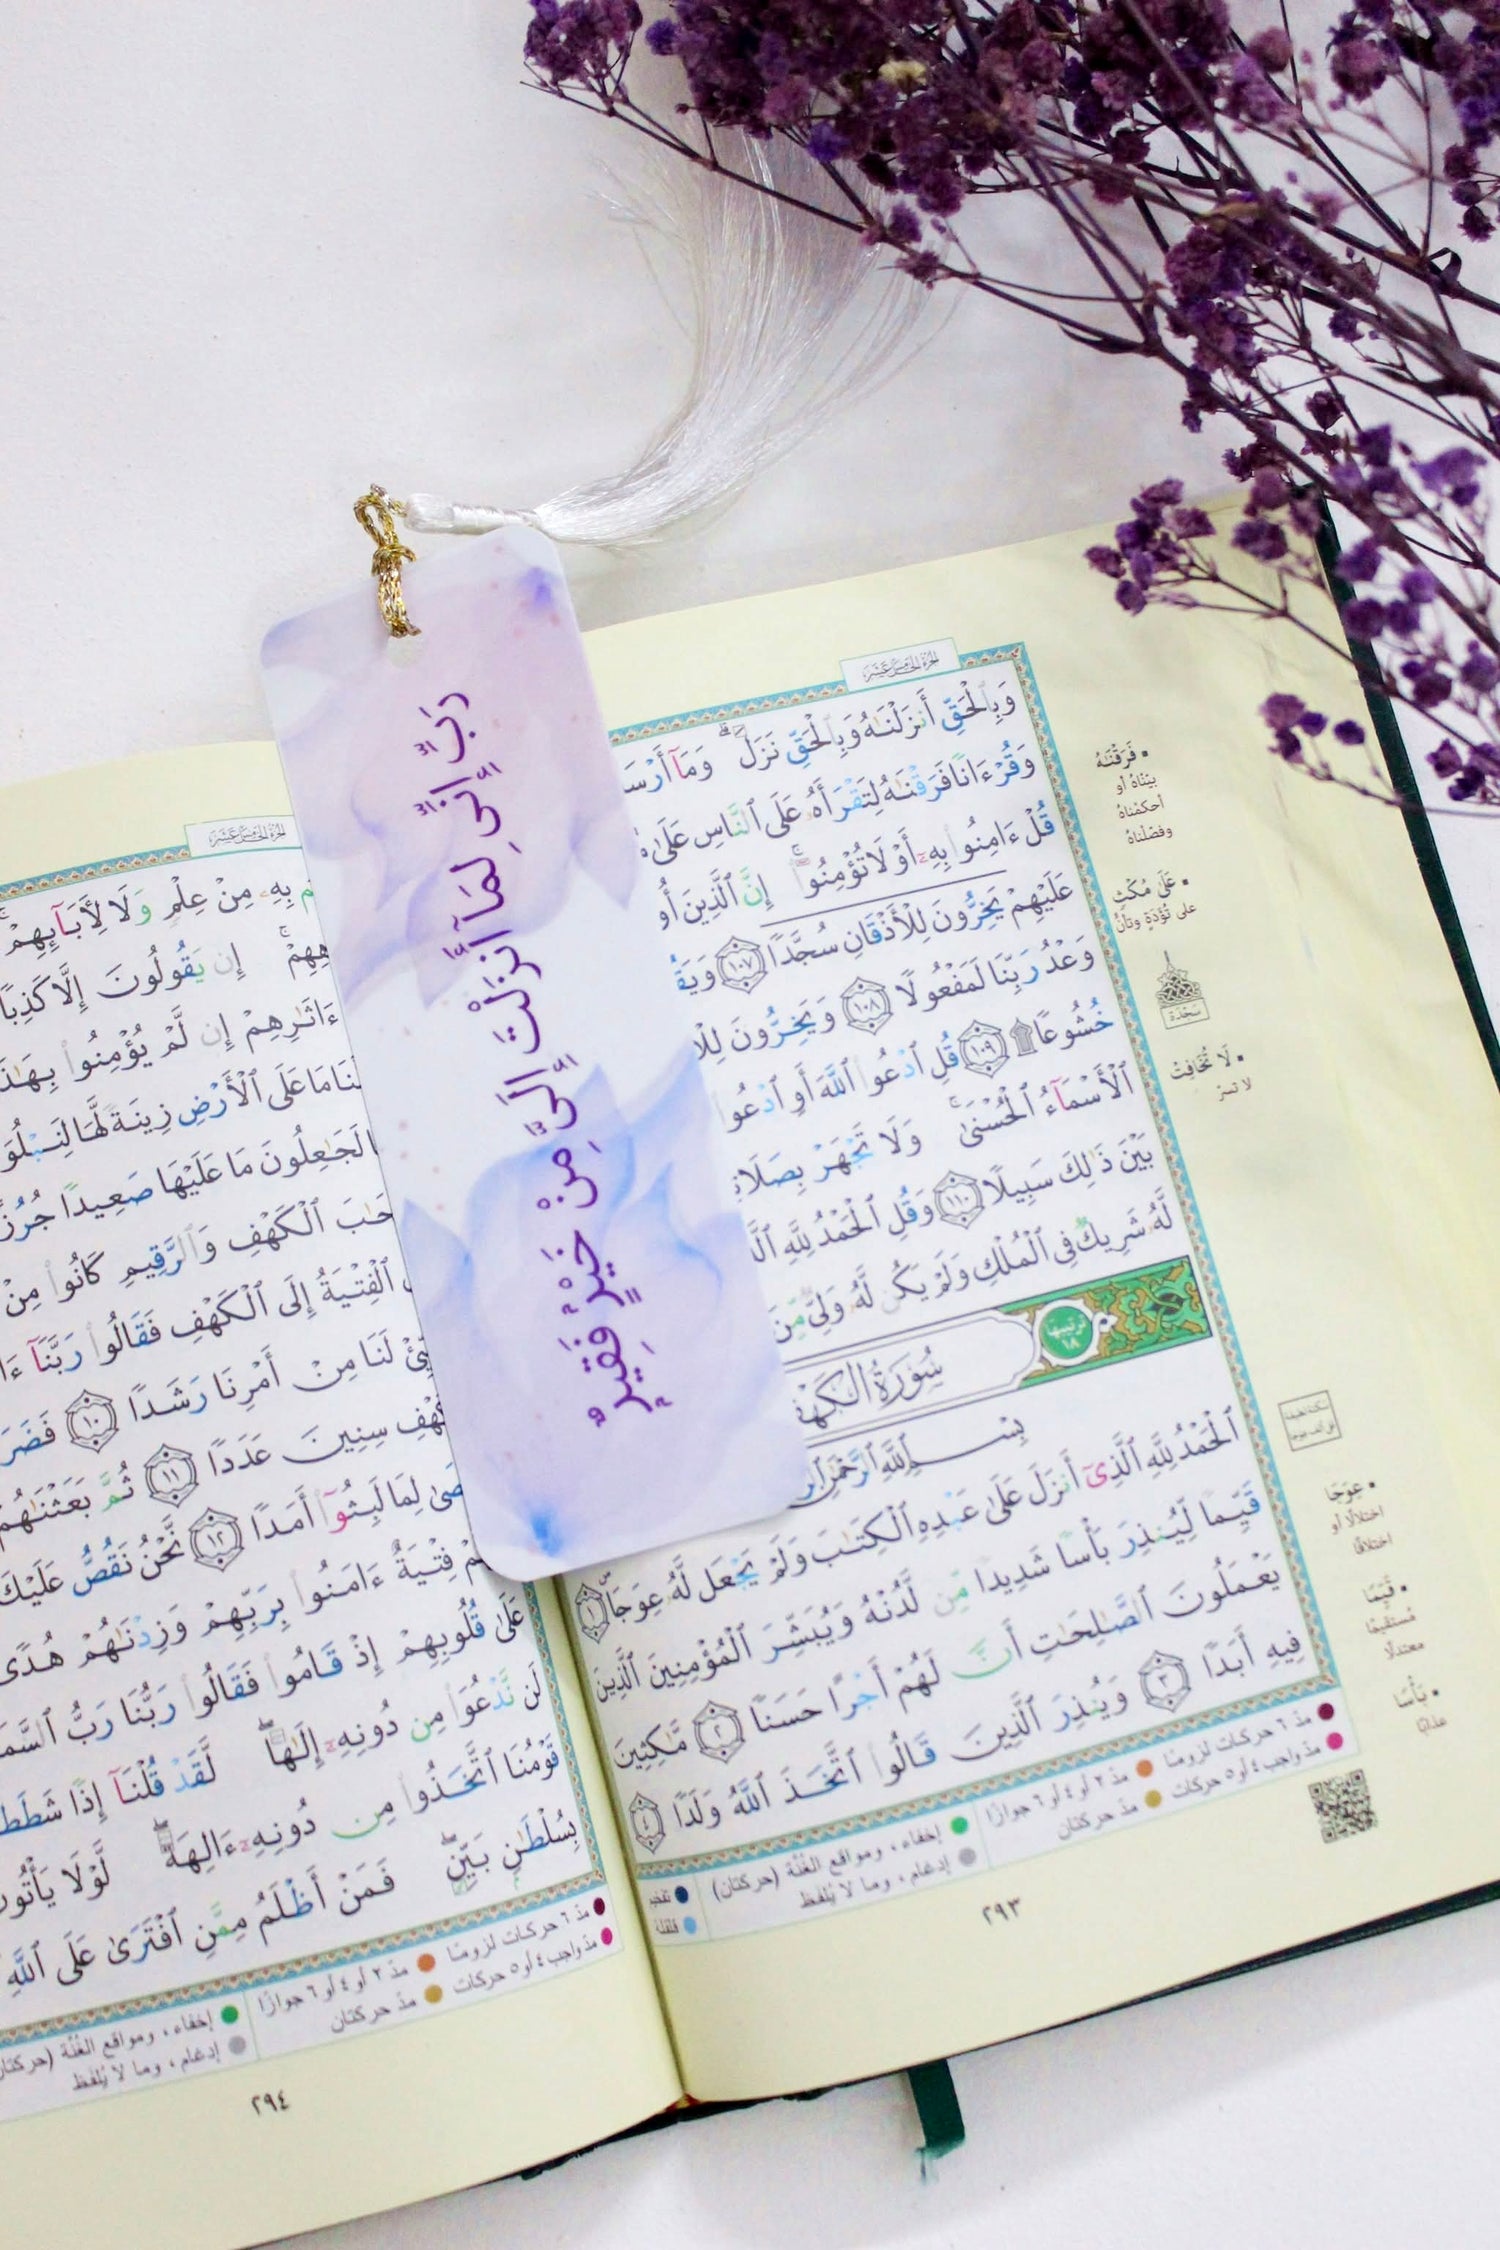 رَبِّ إِنِّي لِمَا أَنزَلْتَ إِلَيَّ مِنْ خَيْرٍ فَقِيرٌ
الجزء الخامس عشر
وَبِٱلْحَقِّ أَنزَلْنَٰهُ وَبِٱلْحَقِّ نَزَلَ ۗ وَمَآ
وَقُرْءَانًا فَرَقْنَٰهُ لِتَقْرَأَهُۥ عَلَى ٱلنَّاسِ عَلَىٰ
قُلْ ءَامِنُوا۟ بِهِۦٓ أَوْ لَا تُؤْمِنُوٓا۟ ۚ إِنَّ ٱلَّذِينَ
عَلَيْهِمْ يَخِرُّونَ لِلْأَذْقَانِ سُجَّدًا ١٠٧
وَعْدُ رَبِّنَا لَمَفْعُولًا ١٠٨ وَيَخِرُّونَ
خُشُوعًا ۩ ١٠٩ قُلِ ٱدْعُوا۟ ٱللَّهَ أَوِ ٱدْعُوا۟
ٱلْأَسْمَآءُ ٱلْحُسْنَىٰ ۚ وَلَا تَجْهَرْ بِصَلَاتِ
بَيْنَ ذَٰلِكَ سَبِيلًا ١١٠ وَقُلِ ٱلْحَمْدُ لِلَّهِ
لَّهُۥ شَرِيكٌ فِى ٱلْمُلْكِ وَلَمْ يَكُن لَّهُۥ وَلِىٌّ مِّنَ
ترتيبها ١٨
سُورَةُ الكَهْف
بِسْمِ ٱللَّهِ ٱلرَّحْمَٰنِ
ٱلْحَمْدُ لِلَّهِ ٱلَّذِىٓ أَنزَلَ عَلَىٰ عَبْدِهِ ٱلْكِتَٰبَ وَلَمْ يَجْعَل لَّهُۥ عِوَجَا ۜ ١
قَيِّمًا لِّيُنذِرَ بَأْسًا شَدِيدًا مِّن لَّدُنْهُ وَيُبَشِّرَ ٱلْمُؤْمِنِينَ ٱلَّذِينَ
يَعْمَلُونَ ٱلصَّٰلِحَٰتِ أَنَّ لَهُمْ أَجْرًا حَسَنًا ٢ مَّٰكِثِينَ
فِيهِ أَبَدًا ٣ وَيُنذِرَ ٱلَّذِينَ قَالُوا۟ ٱتَّخَذَ ٱللَّهُ وَلَدًا ٤
• فَرَقْنَٰهُ
بيّناهُ أو
أحكمْناهُ
وفصّلْناهُ
• عَلَىٰ مُكْثٍ
على تُؤَدَةٍ وتأنٍّ
سَجْدَة
• لَا تُخَافِتْ
لا تسرّ
• عِوَجَا
اختلالًا أو
اختلافًا
• قَيِّمًا
مُستقيمًا
معتدلًا
• بَأْسًا
عذابًا
مدّ ٦ حركات لزومًا
مدّ ٢ أو ٤ أو ٦ جوازًا
مدّ واجب ٤ أو ٥ حركات
مدّ حركتان
إخفاء، ومواقع الغُنَّة (حركتان)
إدغام، وما لا يُلفظ
تفخيم
قلقلة
٢٩٣
الجزء الخامس عشر
بِهِۦ مِنْ عِلْمٍ وَلَا لِـَٔابَآئِهِمْ ۚ
إِن يَقُولُونَ إِلَّا كَذِبًا
ءَاثَٰرِهِمْ إِن لَّمْ يُؤْمِنُوا۟ بِهَٰذَا
مَا عَلَى ٱلْأَرْضِ زِينَةً لَّهَا لِنَبْلُوَ
لَجَٰعِلُونَ مَا عَلَيْهَا صَعِيدًا جُرُزًا
ٱلْكَهْفِ وَٱلرَّقِيمِ كَانُوا۟ مِنْ
ٱلْفِتْيَةُ إِلَى ٱلْكَهْفِ فَقَالُوا۟ رَبَّنَآ
لَنَا مِنْ أَمْرِنَا رَشَدًا ١٠
سِنِينَ عَدَدًا ١١ ثُمَّ بَعَثْنَٰهُمْ
لِمَا لَبِثُوٓا۟ أَمَدًا ١٢ نَّحْنُ نَقُصُّ عَلَيْكَ
فِتْيَةٌ ءَامَنُوا۟ بِرَبِّهِمْ وَزِدْنَٰهُمْ هُدًى
عَلَىٰ قُلُوبِهِمْ إِذْ قَامُوا۟ فَقَالُوا۟ رَبُّنَا رَبُّ
لَن نَّدْعُوَا۟ مِن دُونِهِۦٓ إِلَٰهًا ۖ لَّقَدْ قُلْنَآ إِذًا شَطَطًا
قَوْمُنَا ٱتَّخَذُوا۟ مِن دُونِهِۦٓ ءَالِهَةً ۖ لَّوْلَا
بِسُلْطَٰنٍۭ بَيِّنٍ ۖ فَمَنْ أَظْلَمُ مِمَّنِ ٱفْتَرَىٰ عَلَى ٱللَّهِ
مدّ ٦ حركات لزومًا
مدّ ٢ أو ٤ أو ٦ جوازًا
مدّ واجب ٤ أو ٥ حركات
مدّ حركتان
إخفاء، ومواقع الغُنَّة
إدغام، وما لا يُلفظ
٢٩٤